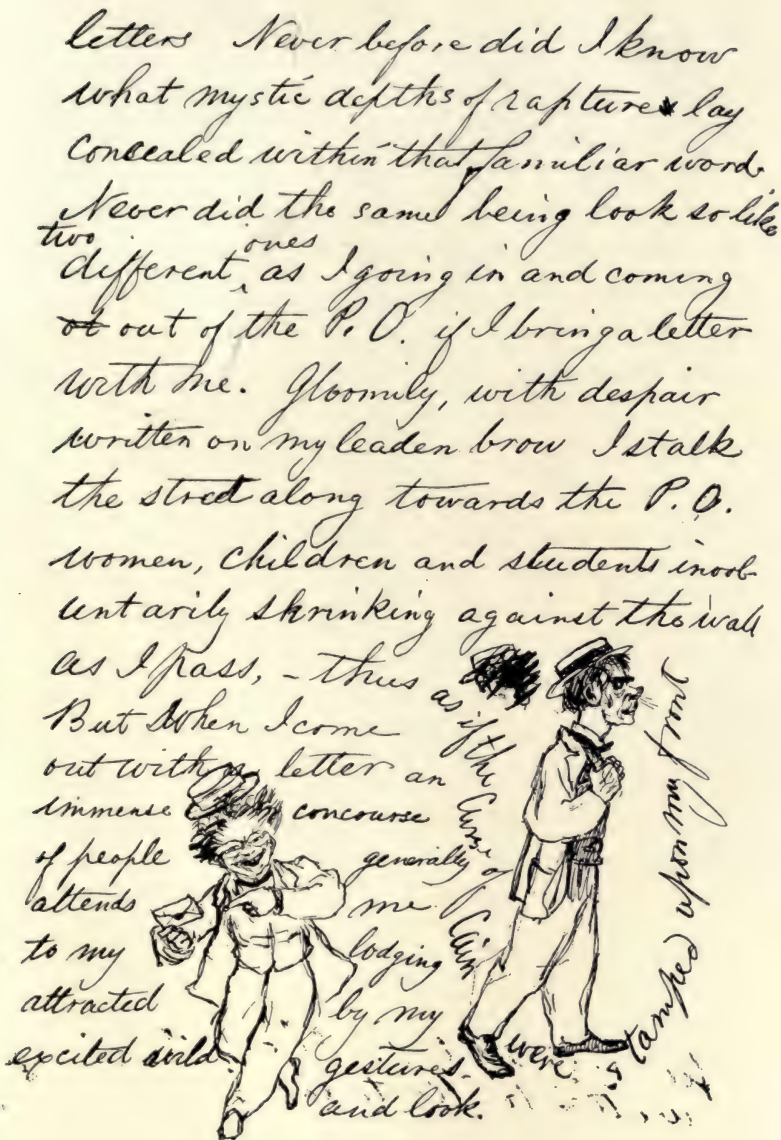 letters Never before did I know
what mystic depths of rapture lay
concealed within that familiar word.
Never did the same being look so like
two ones
different, as I going in and coming
ot out of the P. O. if I bring a letter
with me. Gloomily, with despair
written on my leaden brow I stalk
the street along towards the P. O.
women, children and students invol-
untarily shrinking against the wall
as I pass, - thus
as if the Curse of Cain were stamped upon my front
But when I come
out with a letter an
immense concourse
of people generally
attends me
to my lodging
attracted by my
excited wild gestures
and look.